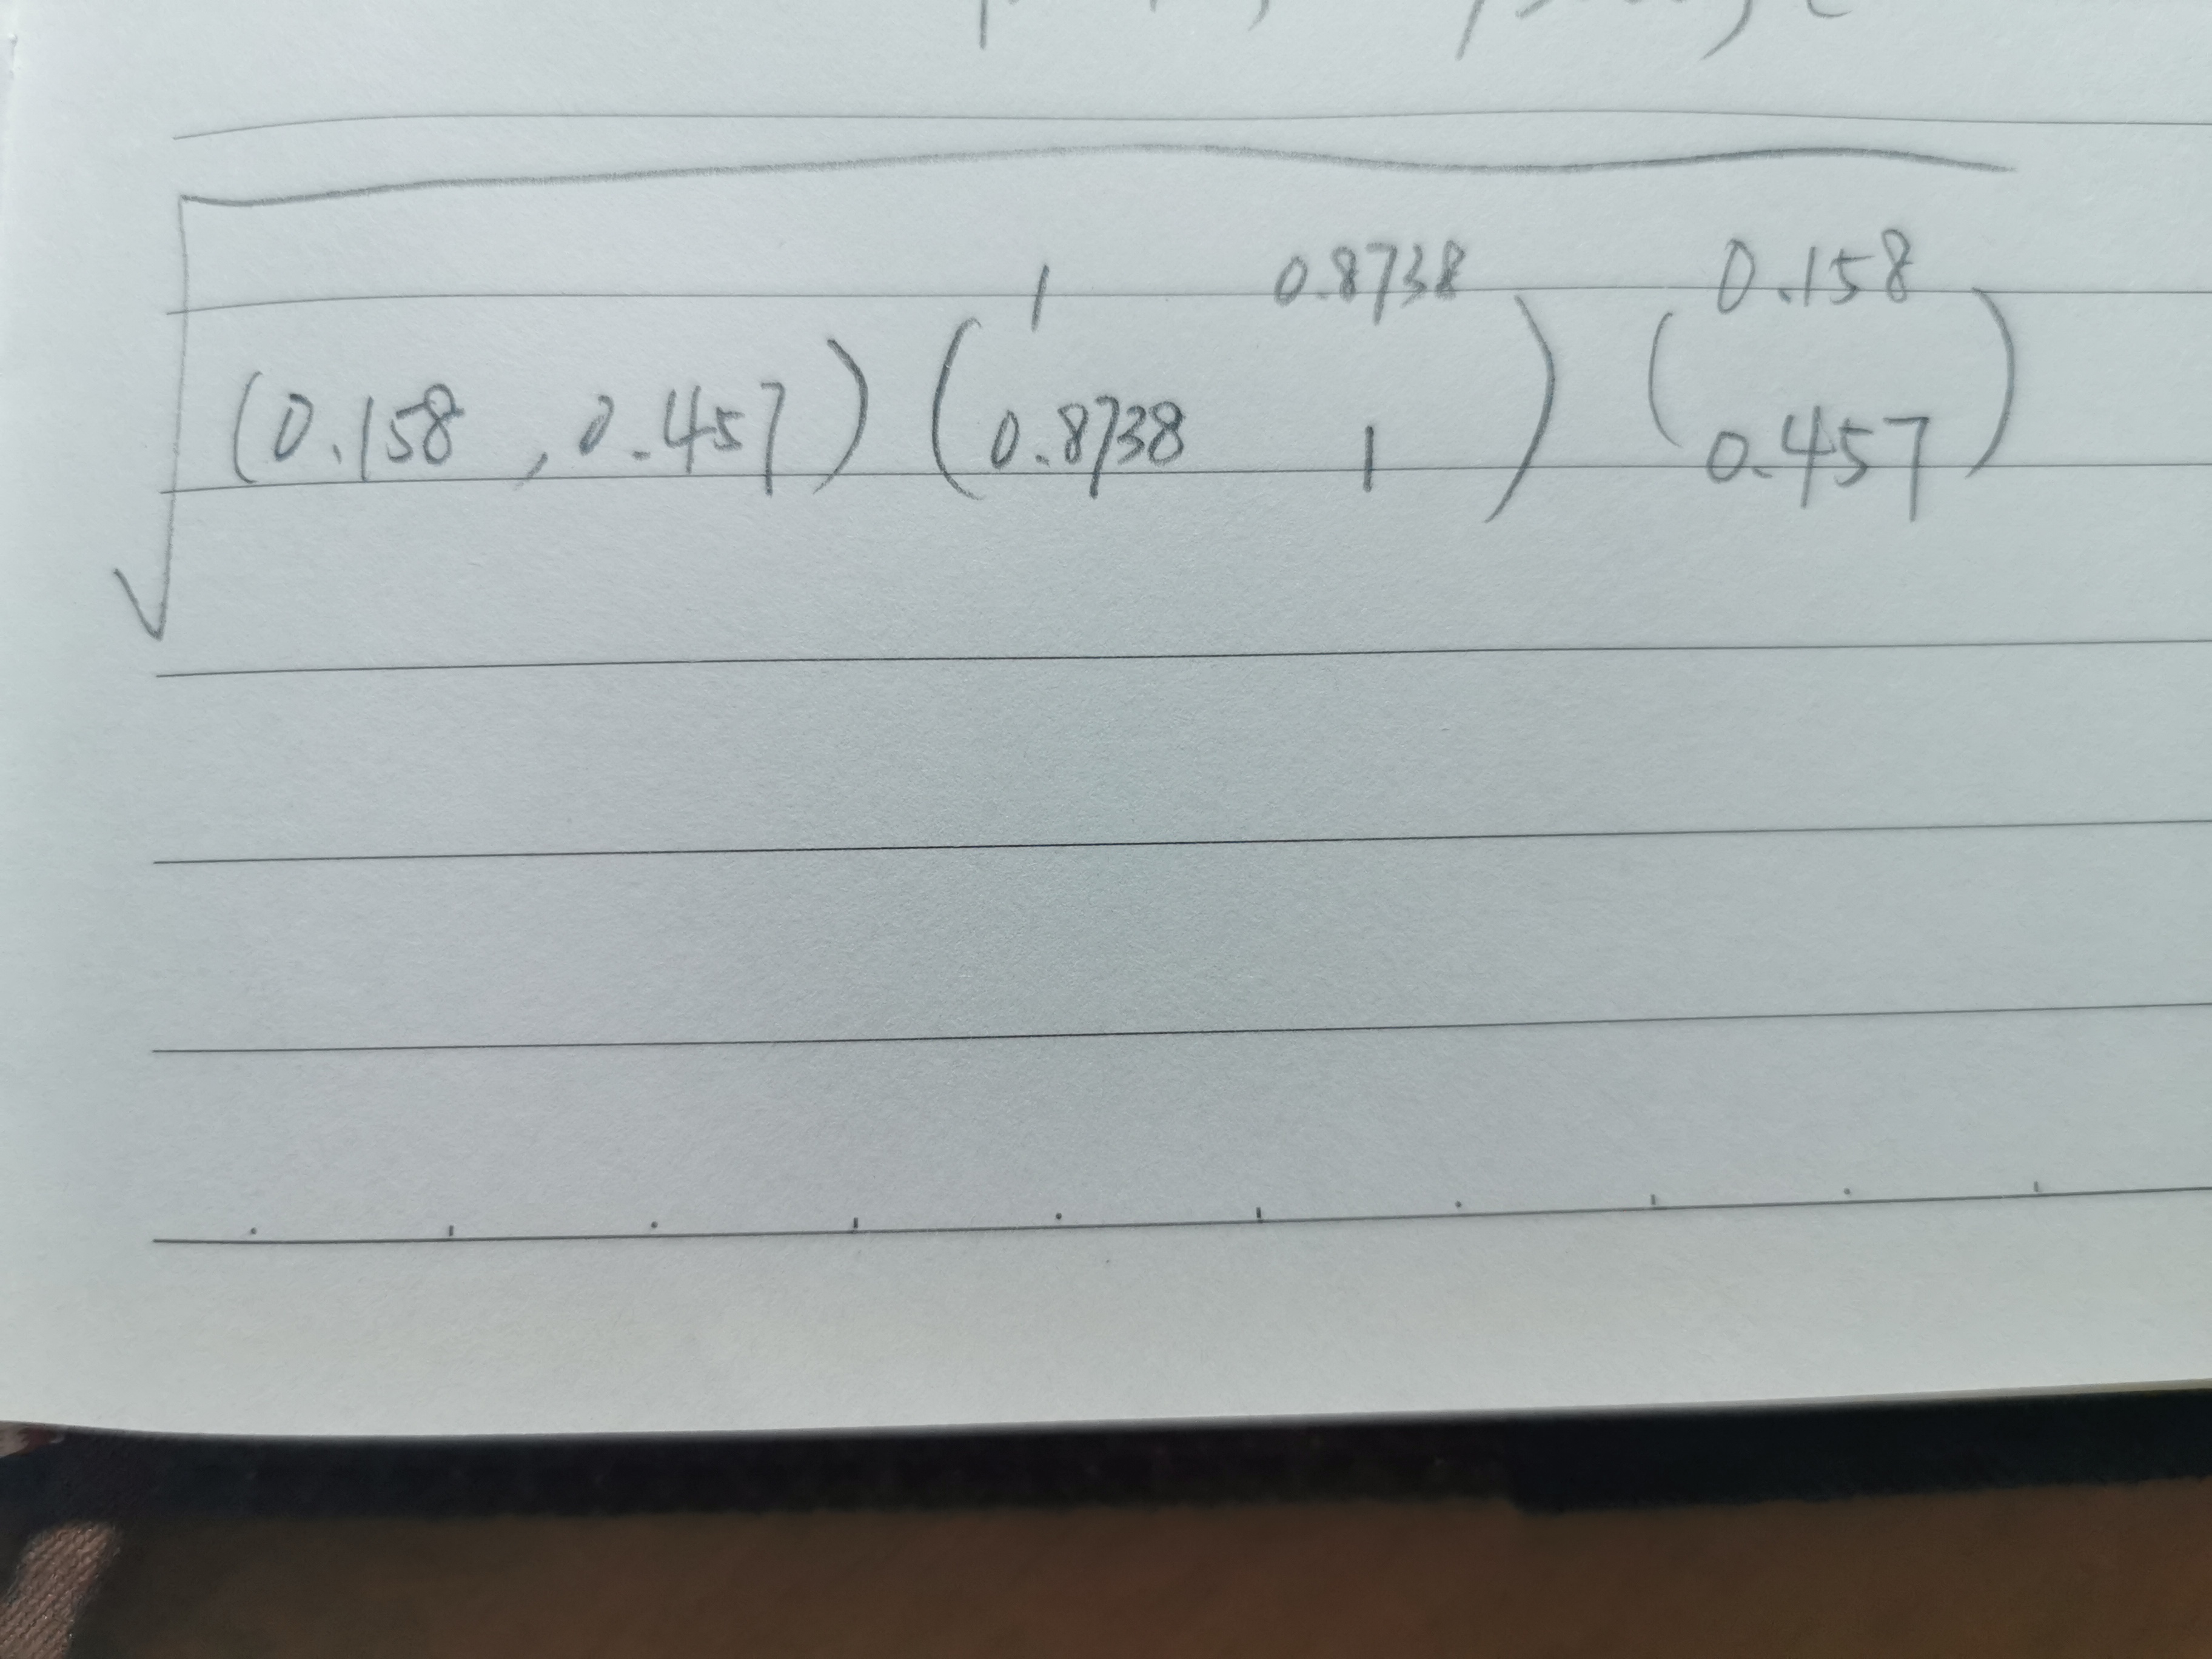 √ (0.158 , 0.457) ( 1 0.8738
0.8738 1 ) ( 0.158
0.457 )